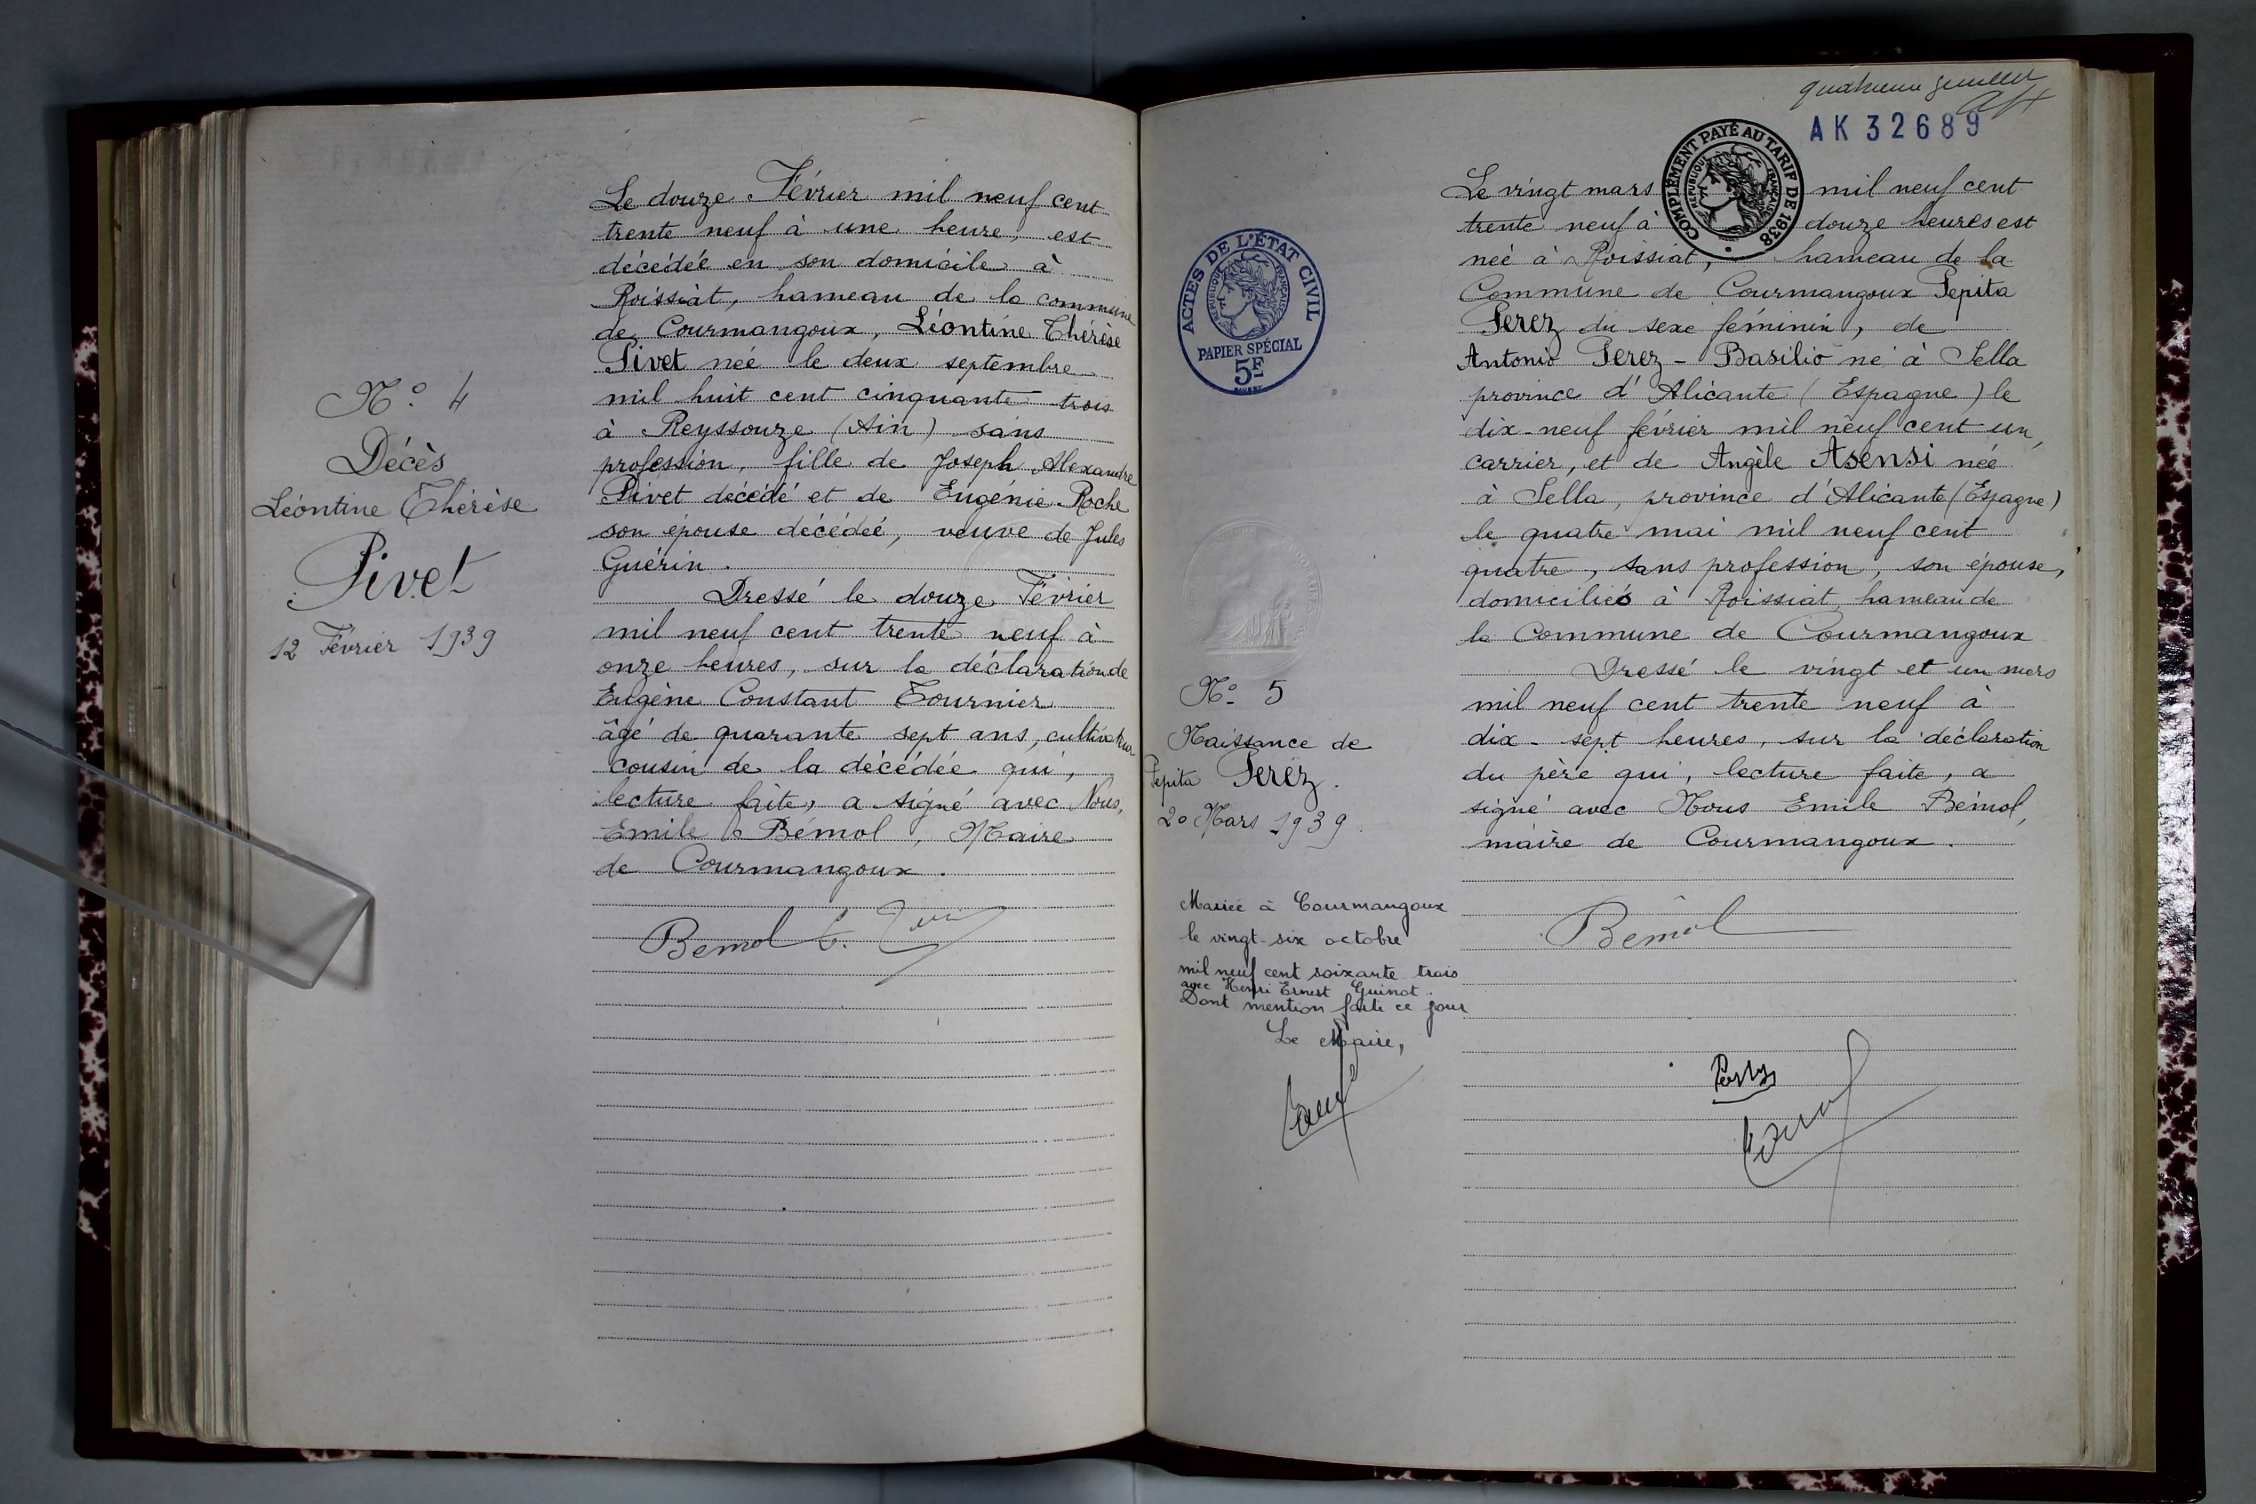 N° 4
Décès
Léontine Thérèse
Pivet
12 Février 1939
Le douze Février mil neuf cent
trente neuf à une heure, est
décédée en son domicile à
Roissiat, hameau de la commune
de Courmangoux, Léontine Thérèse
Pivet née le deux septembre
mil huit cent cinquante trois
à Reyssouze (Ain) sans
profession, fille de Joseph Alexandre
Pivet décédé et de Eugénie Roche
son épouse décédée, veuve de Jules
Guérin.
Dressé le douze Février
mil neuf cent trente neuf à
onze heures, sur la déclaration de
Eugène Constant Tournier
âgé de quarante sept ans, cultivateur
cousin de la décédée qui,
lecture faite, a signé avec Nous,
Emile Bémol, Maire
de Courmangoux.
Bemol
AK 32689
COMPLÉMENT PAYÉ AU TARIF DE 1938
RÉPUBLIQUE FRANÇAISE
ACTES DE L'ÉTAT CIVIL
RÉPUBLIQUE FRANÇAISE
PAPIER SPÉCIAL
5F
N° 5
Naissance de
Pepita Perez.
20 Mars 1939
Mariée à Courmangoux
le vingt-six octobre
mil neuf cent soixante trois
avec Henri Ernest Guinot.
Dont mention faite ce jour
Le Maire,
Le vingt mars mil neuf cent
trente neuf à douze heures est
née à Roissiat, hameau de la
Commune de Courmangoux Pepita
Perez du sexe féminin, de
Antonio Perez - Basilio né à Sella
province d'Alicante (Espagne) le
dix-neuf février mil neuf cent un,
carrier, et de Angèle Asensi née
à Sella, province d'Alicante (Espagne)
le quatre mai mil neuf cent
quatre, sans profession, son épouse,
domiciliés à Roissiat hameau de
la Commune de Courmangoux
Dressé le vingt et un mars
mil neuf cent trente neuf à
dix-sept heures, sur la déclaration
du père qui, lecture faite, a
signé avec Nous Emile Bémol,
maire de Courmangoux.
Bémol